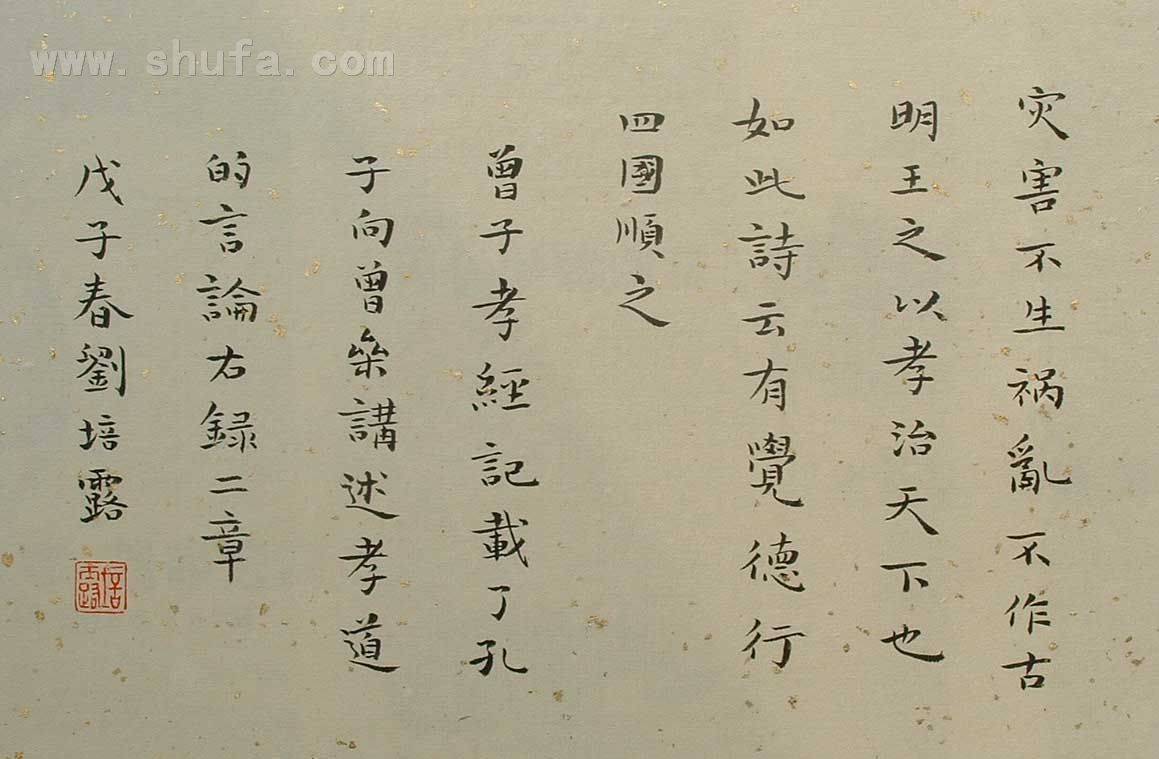 www.shufa.com
灾害不生祸亂不作古
明王之以孝治天下也
如此詩云有覺德行
四國順之
曾子孝經記載了孔
子向曾參講述孝道
的言論右録二章
戊子春劉培露
培露